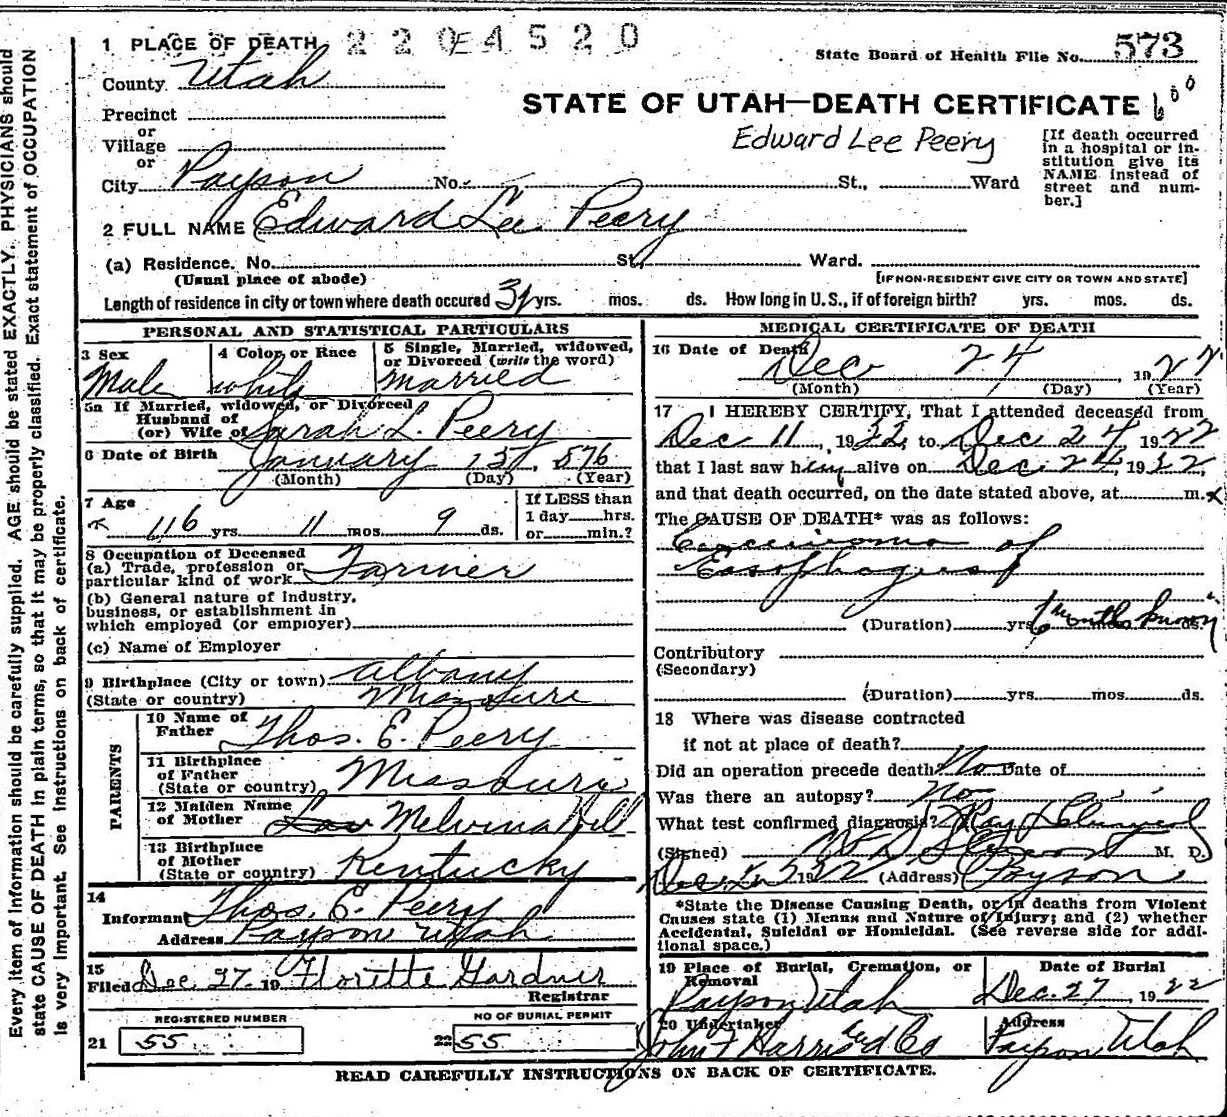 Every item of information should be carefully supplied. AGE should be stated EXACTLY. PHYSICIANS should
state CAUSE OF DEATH in plain terms, so that it may be properly classified. Exact statement of OCCUPATION
is very important. See instructions on back of certificate.
1 PLACE OF DEATH 2 2 0 E 4 5 2 0
State Board of Health File No. 573
County Utah
STATE OF UTAH—DEATH CERTIFICATE
Precinct
or
Village
or
Edward Lee Peery
[If death occurred
in a hospital or in-
stitution give its
NAME instead of
street and num-
ber.]
City Payson No. St., Ward
2 FULL NAME Edward Lee Peery
(a) Residence. No. St., Ward.
(Usual place of abode) [IF NON-RESIDENT GIVE CITY OR TOWN AND STATE]
Length of residence in city or town where death occured 31 yrs. mos. ds. How long in U. S., if of foreign birth? yrs. mos. ds.
PERSONAL AND STATISTICAL PARTICULARS
3 Sex
Male
4 Color or Race
white
5 Single, Married, widowed,
or Divorced (write the word)
married
5a If Married, widowed, or Divorced
Husband of
(or) Wife of Sarah L. Peery
6 Date of Birth January 15, 876
(Month) (Day) (Year)
7 Age
46 yrs 11 mos 9 ds.
If LESS than
1 day hrs.
or min.?
8 Occupation of Deceased
(a) Trade, profession or
particular kind of work Farmer
(b) General nature of industry,
business, or establishment in
which employed (or employer)
(c) Name of Employer
9 Birthplace (City or town) Albany
(State or country) Missouri
PARENTS
10 Name of
Father Thos. E. Peery
11 Birthplace
of Father
(State or country) Missouri
12 Maiden Name
of Mother Melvina Hill
13 Birthplace
of Mother
(State or country) Kentucky
14
Informant Thos. E. Peery
Address Payson Utah
15
Filed Dec 27. 19 Florette Gardner
Registrar
REGISTERED NUMBER
21 55
NO OF BURIAL PERMIT
22 55
MEDICAL CERTIFICATE OF DEATH
16 Date of Death
Dec 24, 1922
(Month) (Day) (Year)
17 I HEREBY CERTIFY, That I attended deceased from
Dec 11, 1922, to Dec 24, 1922
that I last saw him alive on Dec. 24, 1922,
and that death occurred, on the date stated above, at m.
The CAUSE OF DEATH* was as follows:
Carcinoma of
Easophagus
(Duration) yrs. 6 months known ds.
Contributory
(Secondary)
(Duration) yrs. mos. ds.
18 Where was disease contracted
if not at place of death?
Did an operation precede death? No Date of
Was there an autopsy? No
What test confirmed diagnosis? X Ray & Clinical
(Signed) Stewart M. D.
Dec 1922 (Address) Payson
*State the Disease Causing Death, or in deaths from Violent
Causes state (1) Means and Nature of Injury; and (2) whether
Accidental, Suicidal or Homicidal. (See reverse side for addi-
tional space.)
19 Place of Burial, Cremation, or
Removal
Payson Utah
Date of Burial
Dec. 27, 1922
20 Undertaker
John Harris Co
Address
Payson Utah
READ CAREFULLY INSTRUCTIONS ON BACK OF CERTIFICATE.